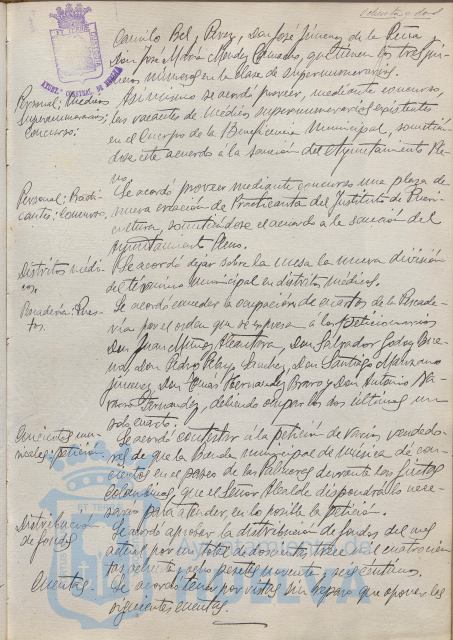 Camilo Bel y Perez, Don José Jimenez de la Peña
Don José María Mendez Camacho, que tienen los tres pri-
meros números en la clase de supernumerarios.
Personal; Médicos
Supernumerarios;
Concurso:
Así mismo se acordó proveer, mediante concurso,
las vacantes de Médicos supernumerarios existentes
en el Cuerpo de la Beneficencia Municipal, sometién-
dose este acuerdo á la sanción del Ayuntamiento Ple-
no.
Personal; Practi-
cantes; Concurso.
Se acordó proveer mediante concurso una plaza de
nueva creación de Practicanta del Instituto de Pueri-
cultura, sometiéndose el acuerdo a la sanción del
Ayuntamiento Pleno.
Distritos médi-
cos.
Se acordó dejar sobre la mesa la nueva división
del término municipal en distritos médicos.
Pescadería: Pues-
tos.
Se acordó conceder la ocupación de puestos de la Pescade-
ría por el orden que se expresa á los peticionarios
Don Juan Muñoz Alcántara, Don Salvador Godoy
Don Pedro Sanchez, Don Santiago Manzano
Jimenez, Don Tomas Hernandez Bravo y Don Antonio Na-
varro Fernandez, debiendo ocupar los dos últimos un
solo cuarto.
Conciertos mu-
sicales; petición.
Se acordó contestar á la petición de varios vendedo-
res de que la Banda municipal de música de con-
ciertos en el paseo de las Palmeras durante las fiestas
colombinas, que el Señor Alcalde dispondrá lo nece-
sario para atender, en lo posible la petición.
Distribución
de fondos
Se acordó aprobar la distribución de fondos del mes
actual por un total de doscientas trece mil cuatrocien-
tas ochenta y ocho pesetas noventa y seis céntimos.
Cuentas.
Se acordó tener por vistas sin reparo que oponer las
siguientes cuentas.